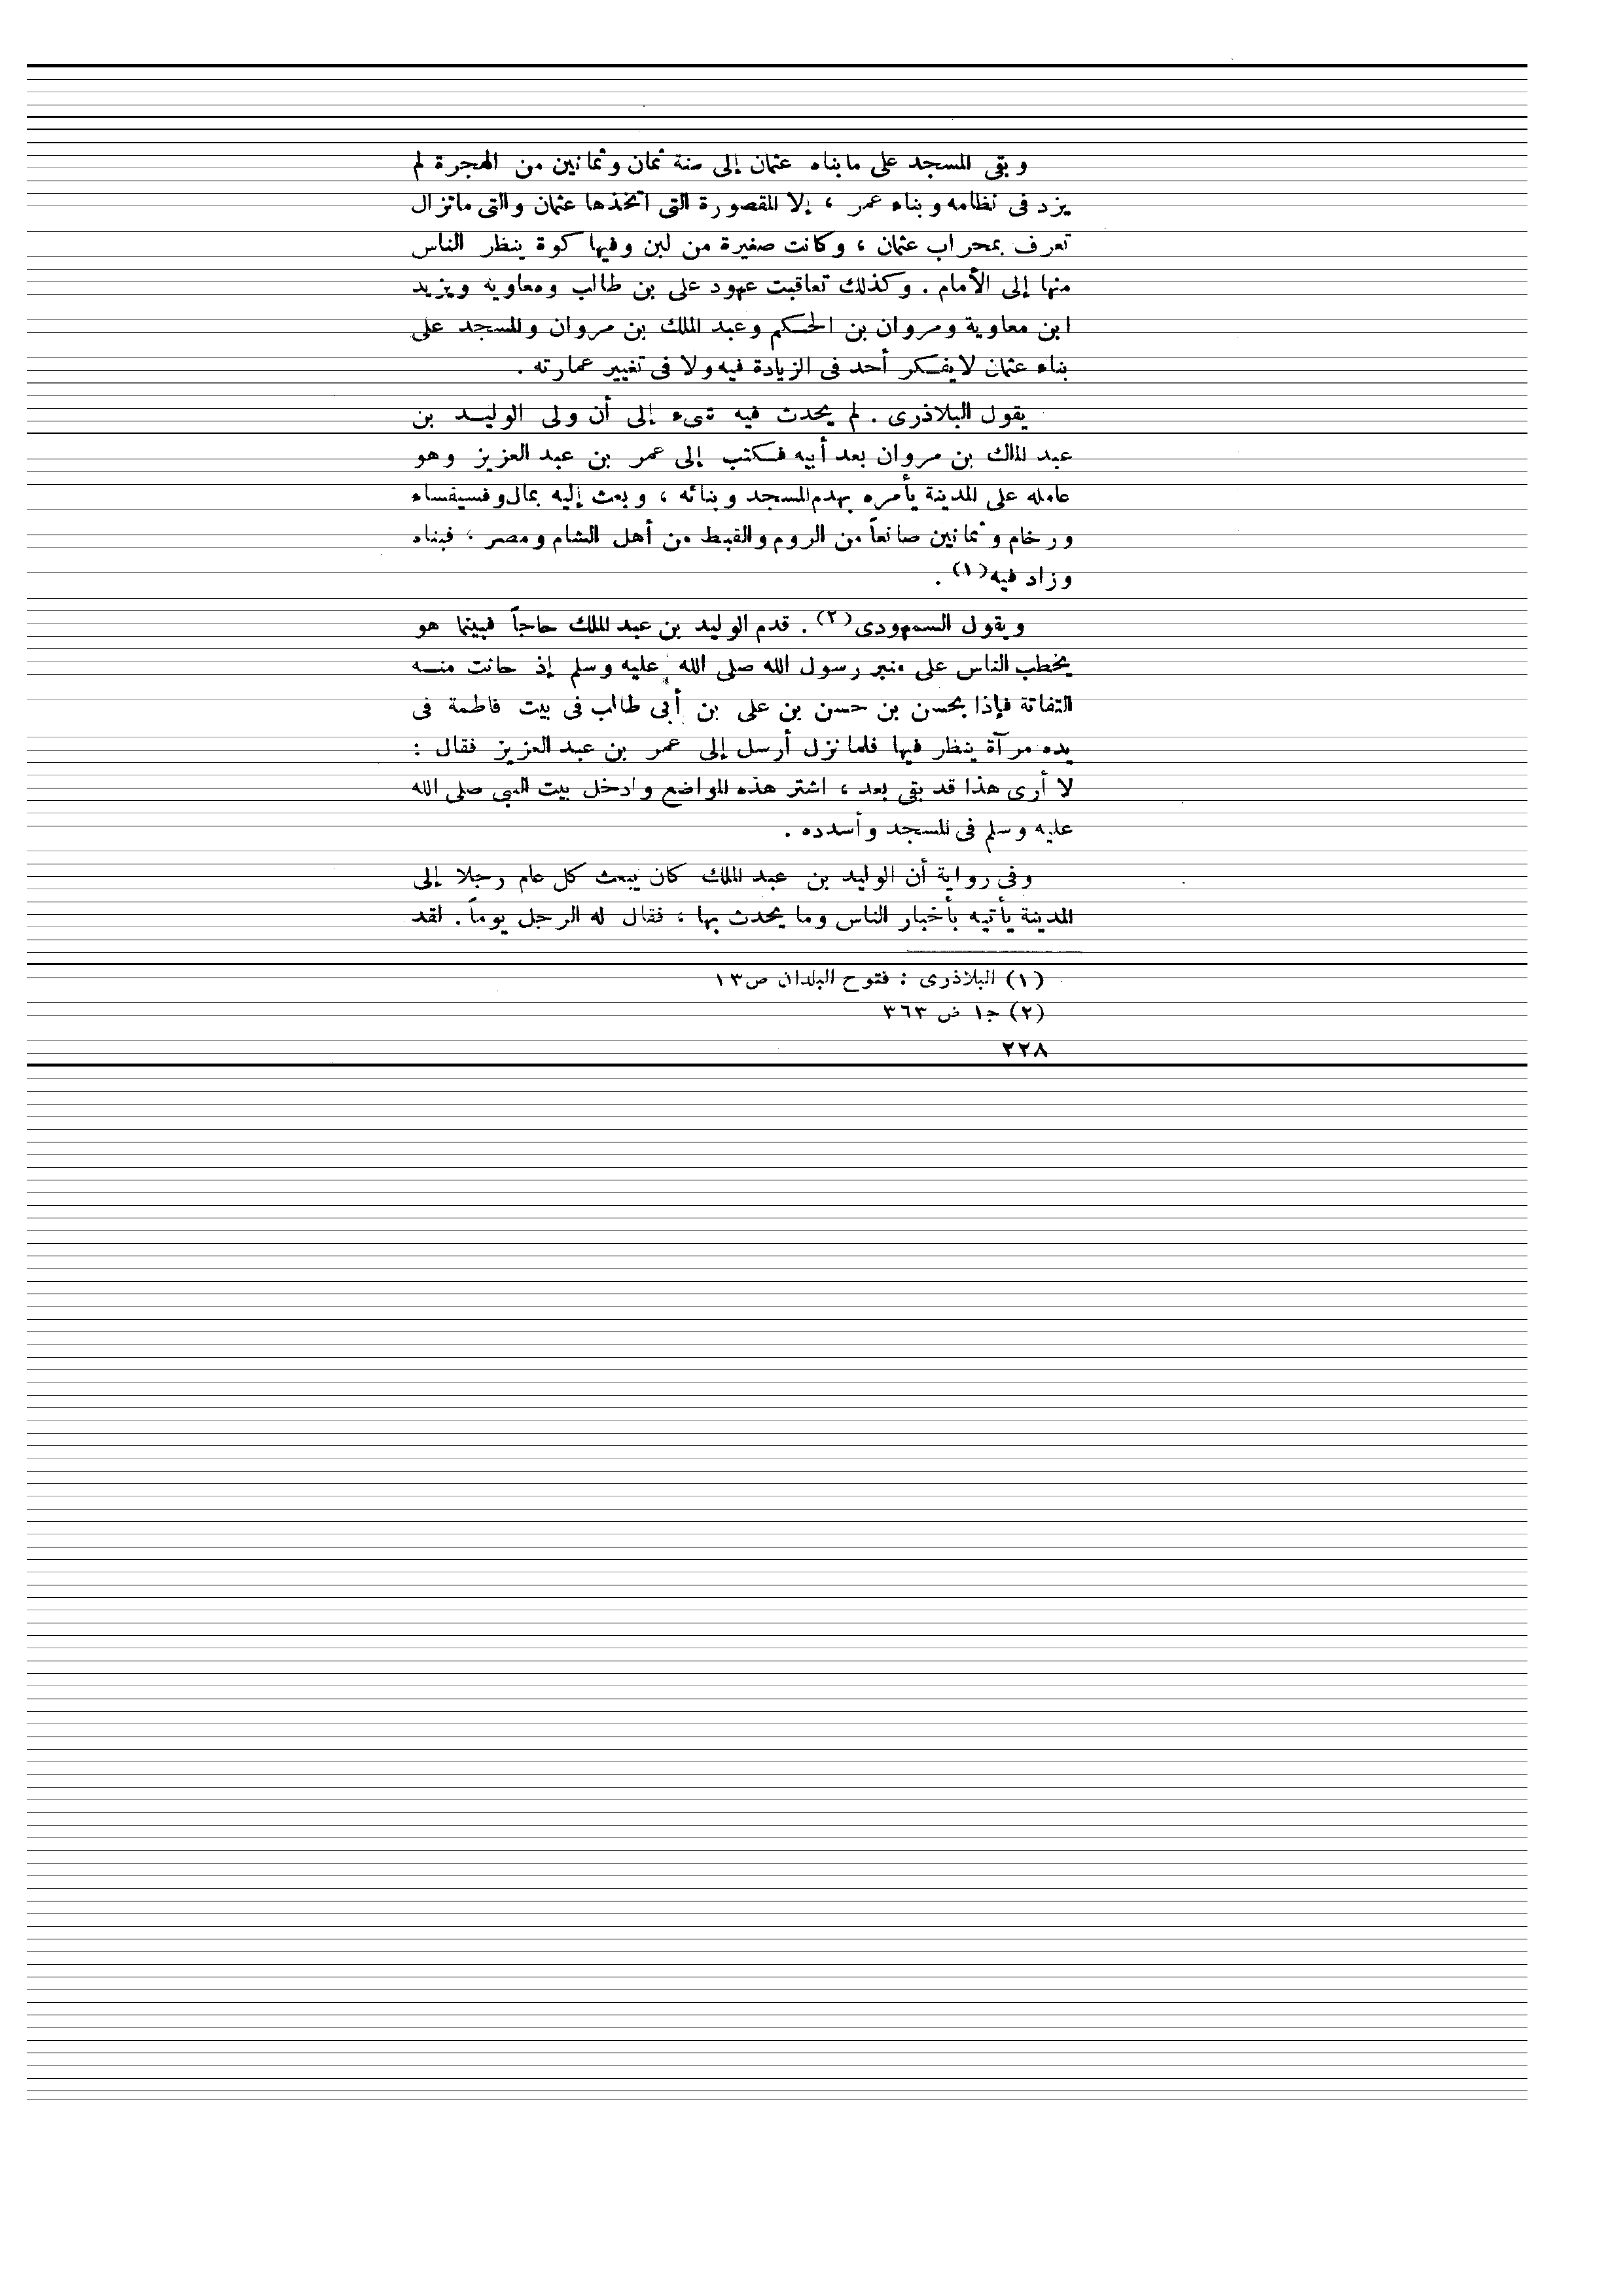 وبقى المسجد على ما بناه عثمان إلى سنة ثمان وثمانين من الهجرة لم
يزد فى نظامه وبناء عمر ، إلا المقصورة التى اتخذها عثمان والتى ما تزال
تعرف بمحراب عثمان ، وكانت صغيرة من لبن وفيها كوة ينظر الناس
منها إلى الأمام . وكذلك تعاقبت عهود على بن طالب ومعاوية ويزيد
ابن معاوية ومروان بن الحكم وعبد الملك بن مروان والمسجد على
بناء عثمان لا يفكر أحد فى الزيادة فيه ولا فى تغيير عمارته .
يقول البلاذرى . لم يحدث فيه شىء إلى أن ولى الوليد بن
عبد الملك بن مروان بعد أبيه فكتب إلى عمر بن عبد العزيز وهو
عامله على المدينة يأمره بهدم المسجد وبنائه ، وبعث إليه بمال وفسيفساء
ورخام وثمانين صانعاً من الروم والقبط من أهل الشام ومصر ، فبناه
وزاد فيه (١) .
ويقول السمهودى (٢) . قدم الوليد بن عبد الملك حاجاً فبينما هو
يخطب الناس على منبر رسول الله صلى الله عليه وسلم إذ حانت منه
التفاتة فإذا بحسن بن حسن بن على بن أبى طالب فى بيت فاطمة فى
يده مرآة ينظر فيها فلما نزل أرسل إلى عمر بن عبد العزيز فقال :
لا أرى هذا قد بقى بعد ، اشتر هذه المواضع وادخل بيت النبى صلى الله
عليه وسلم فى المسجد وأسدده .
وفى رواية أن الوليد بن عبد الملك كان يبعث كل عام رجلا إلى
المدينة يأتيه بأخبار الناس وما يحدث بها ، فقال له الرجل يوماً . لقد
(١) البلاذرى : فتوح البلدان ص ١٣
(٢) ج١ ض ٣٦٣
٢٢٨